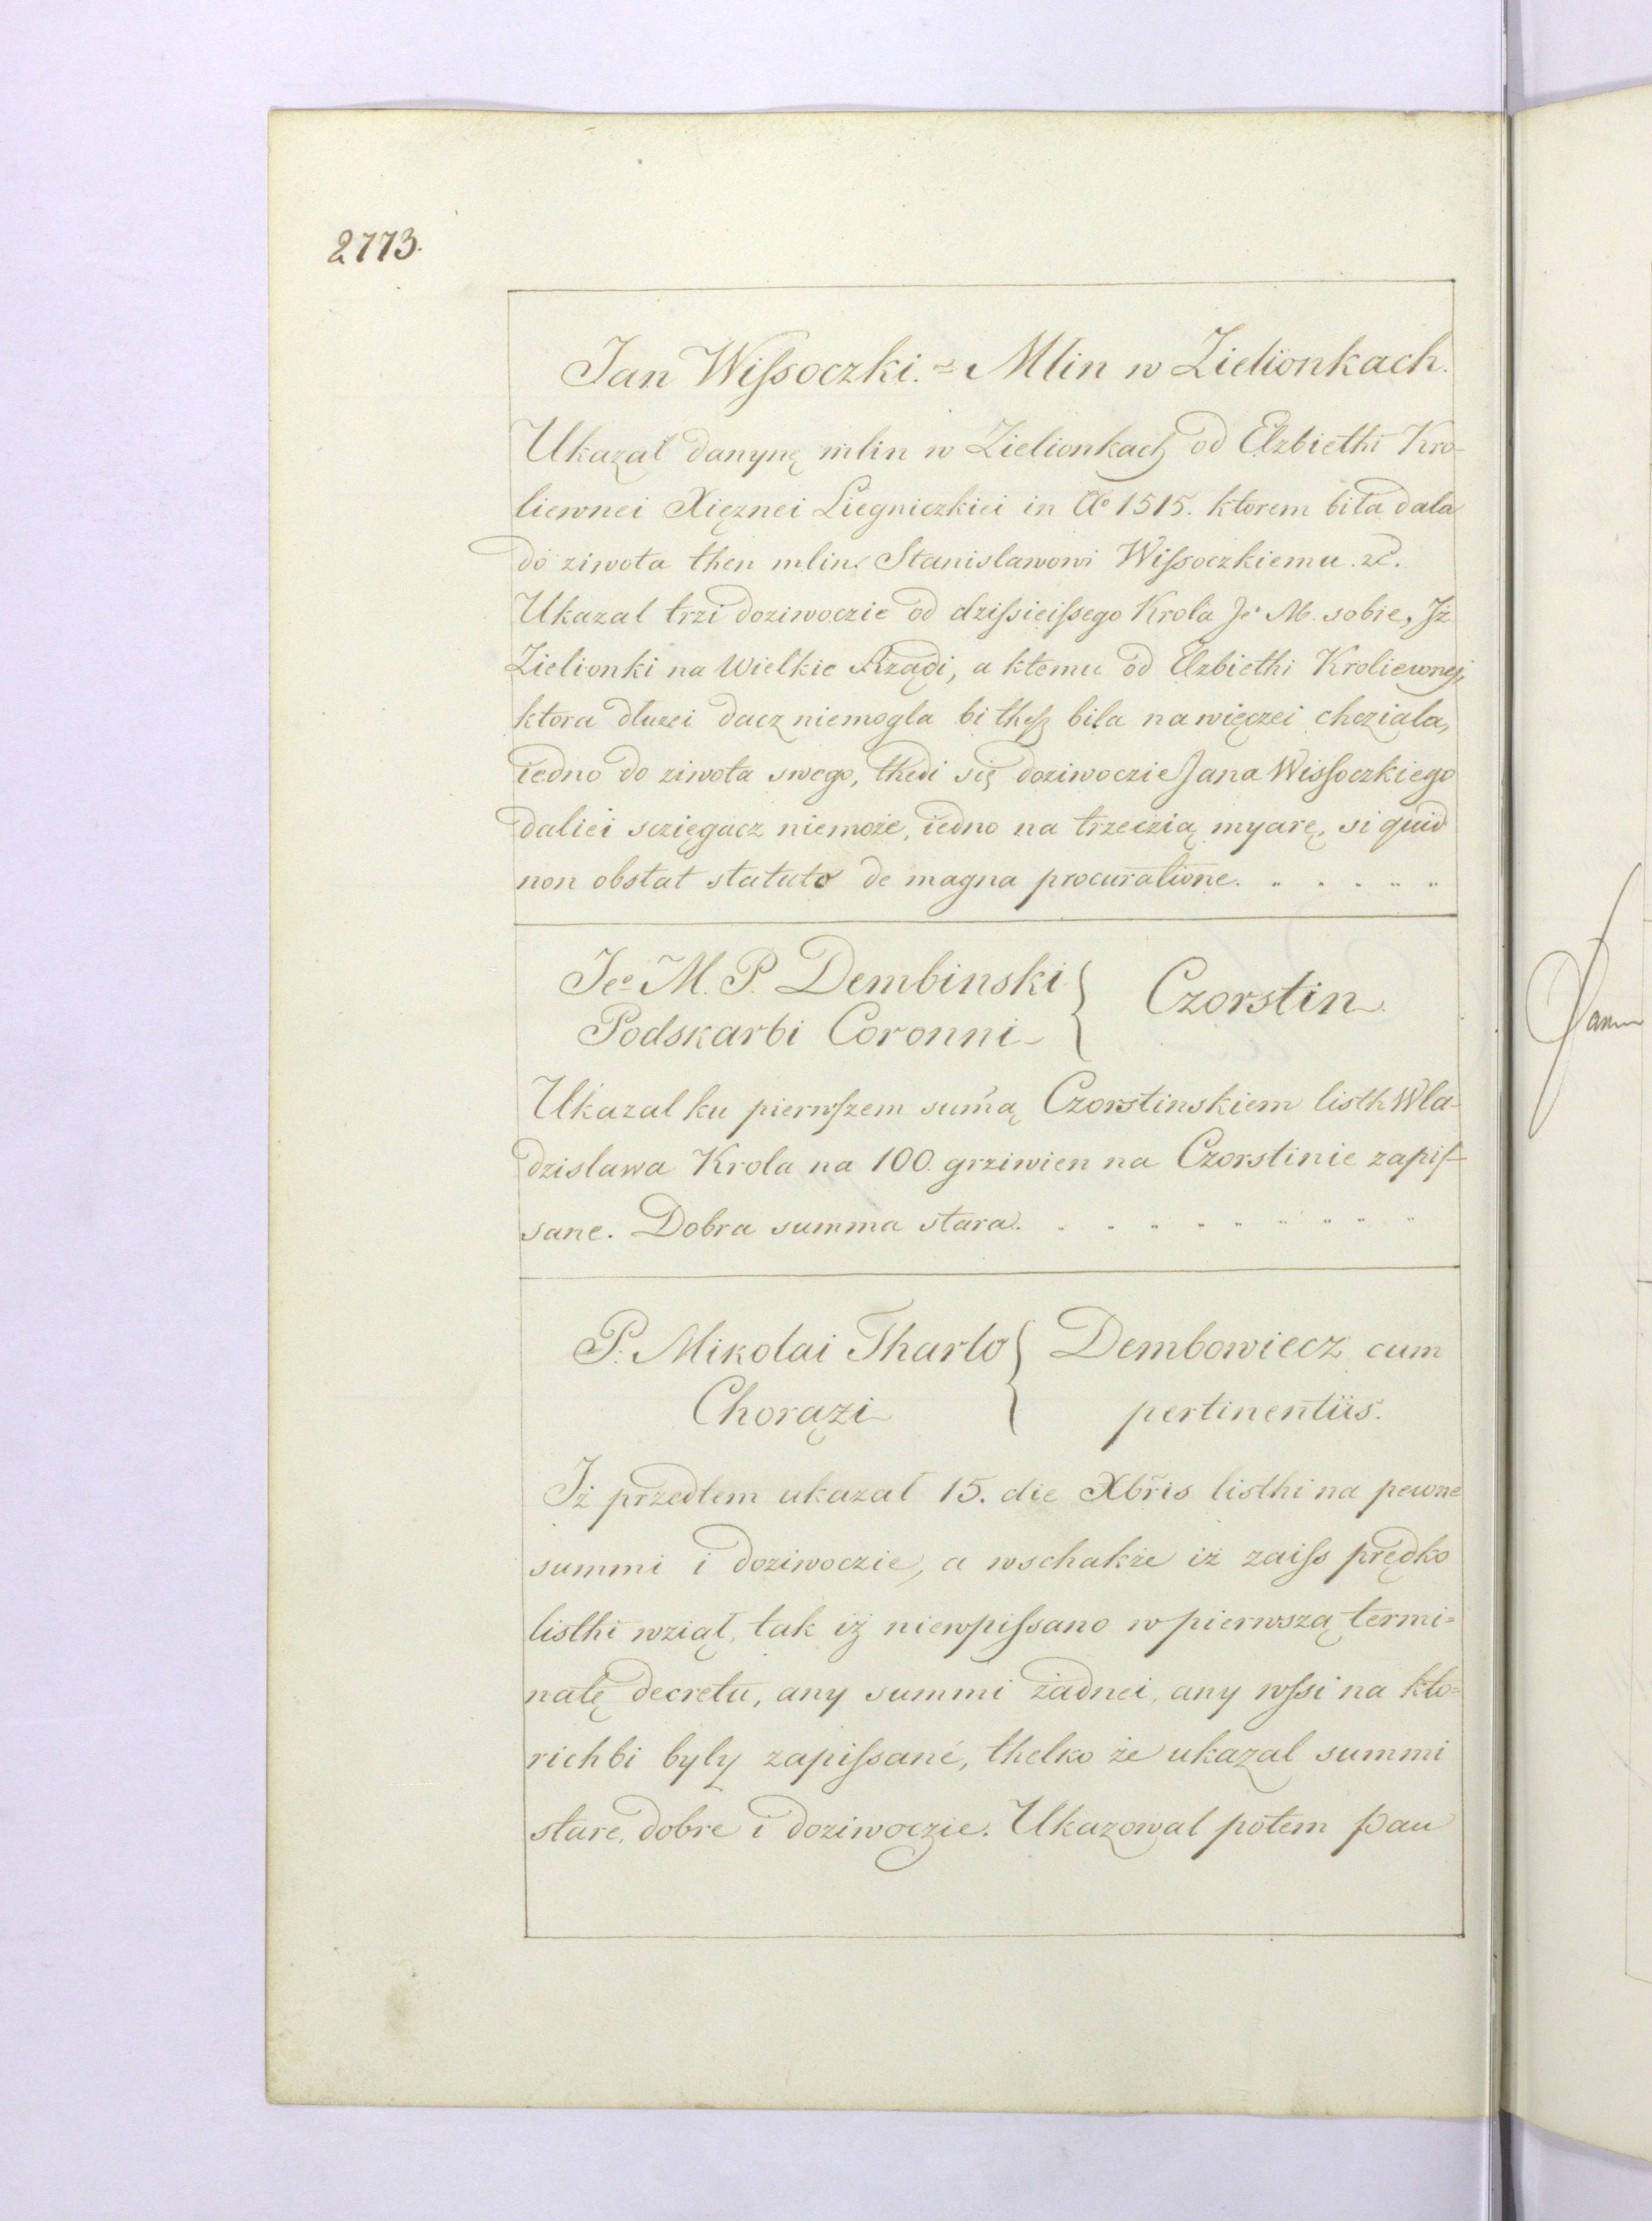 2773.
Jan Wiſsoczki. = Mlin w Zielionkach.
Ukazal danynę mlin w Zielionkach od Elzbiethi Kro-
liewnei Xięznei Liegniczkiei in Ao 1515. ktorem bila dala
do ziwota then mlin Stanislawowi Wiſsoczkiemu. 2c.
Ukazal trzi doziwoczie od dziſsieiſsego Krola Je M. sobie, Jż
Zielionki na Wielkie Rządi, a ktemu od Elzbiethi Kroliewnej,
ktora dluzei dacz niemogla bi thesz bila nawięczei chcziala,
iedno do ziwota swego, thedi się doziwoczie Jana Wisſoczkiego
daliei scziegacz niemoże, iedno na trzeczią myarę, si quid
non obstat statuto de magna procuratione. . . . . . .
Jeo M. P. Dembinski
Podskarbi Coronni
Czorstin
Ukazal ku pierwſzem sum̃ą Czorstinskiem listh Wla-
dzislawa Krola na 100. grziwien na Czorstinie zapiſ-
sane. Dobra summa stara. . . . . . . . . .
P. Mikolai Tharlo
Chorązi
Dembowiecz cum
pertinentiis.
Jż przedtem ukazal 15. die Xbr̃is listhi na pewne
summi i doziwoczie, a wschakże iż zaiſs prędko
listhi wziął, tak iż niewpiſsano w pierwszą termi=
natę decretu, any summi żadnei, any wſsi na kto=
richbi były zapiſsané, thelko że ukazal summi
stare, dobre i doziwoczie. Ukazowal potem Pan
Panu